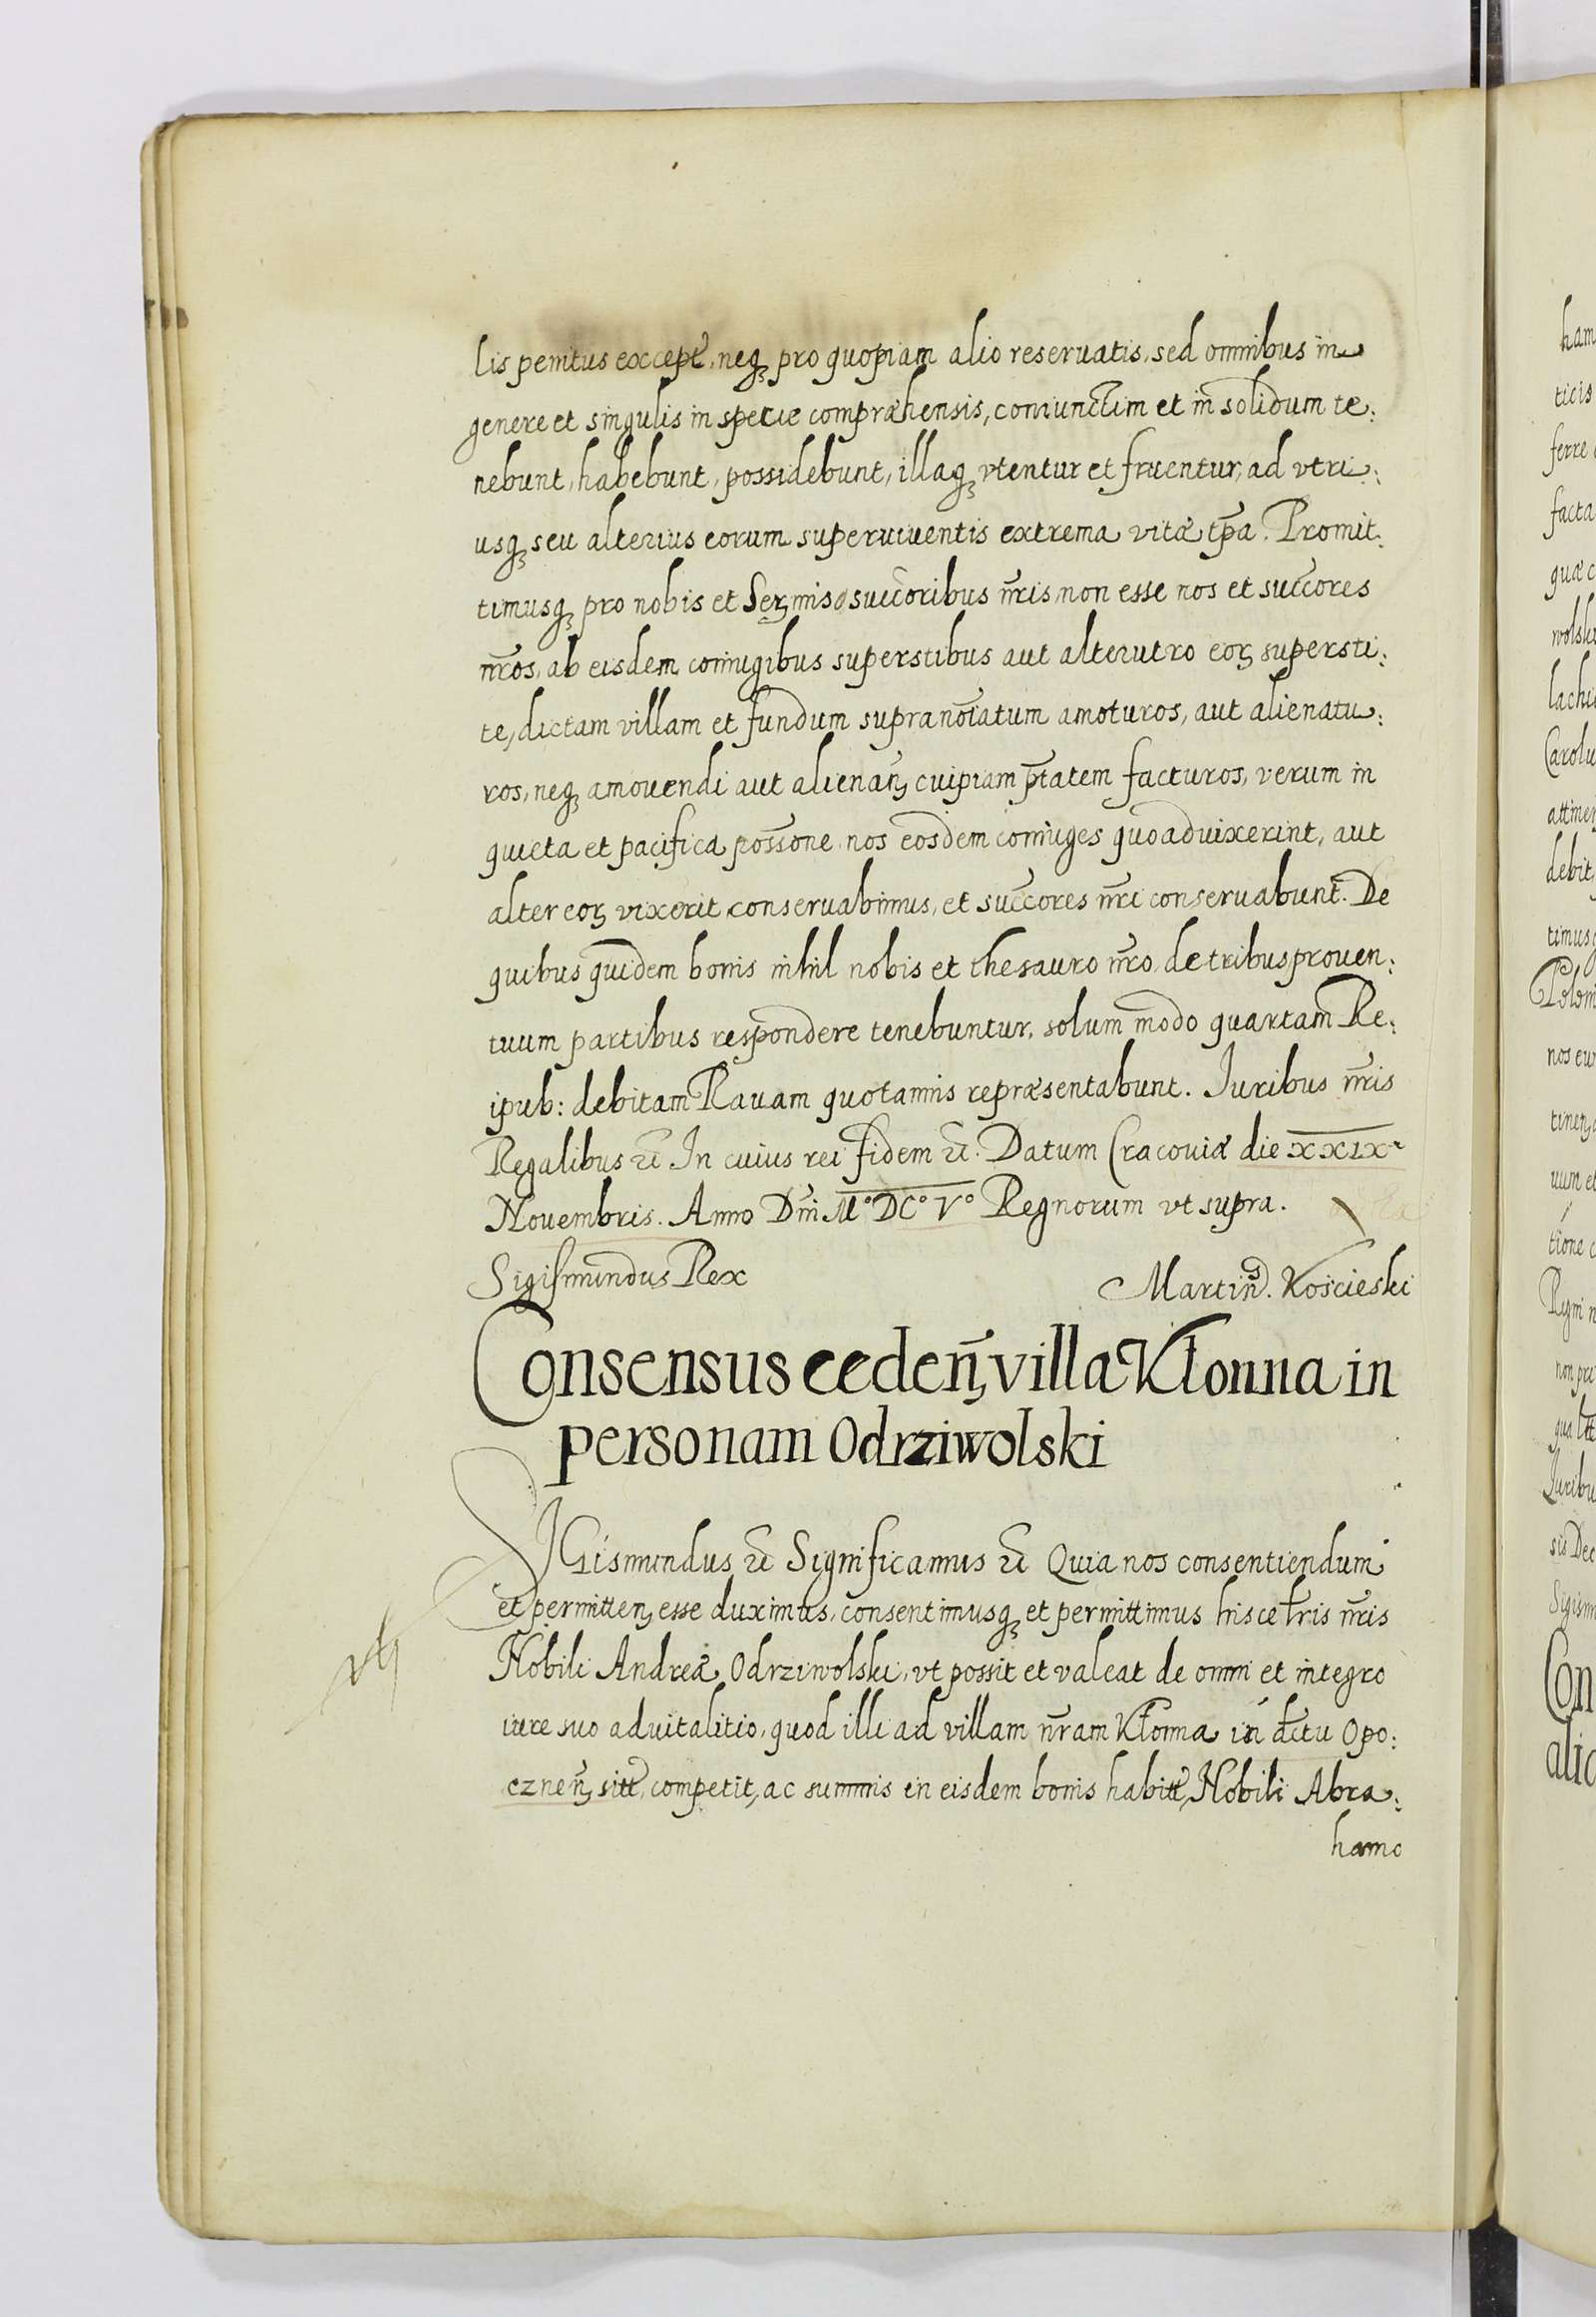 lis penitus except̃, neqꝫ pro quopiam alio reseruatis, sed omnibus in
genere et singulis in specie compræhensis, coniunctim et in solidum te:
nebunt, habebunt, possidebunt, illaqꝫ vtentur et fruentur, ad vtri:
usqꝫ seu alterius eorum superuiuentis extrema vitæ tp̃a. Promit:
timusqꝫ pro nobis et Serꝫmis succoribus nr̃is, non esse nos et succores
nr̃os, ab eisdem coniugibus superstibus aut alterutro eorꝫ supersti:
te, dictam villam et fundum supranõiatum amoturos, aut alienatu:
ros, neqꝫ amouendi aut alienañꝫ cuipiam p̃tatem facturos, verum in
quieta et pacifica possone nos eosdem coniuges quoaduixerint, aut
alter eorꝫ vixerit conseruabimus, et succores nr̃i conseruabunt. De
quibus quidem bonis nihil nobis et thesauro nr̃o de tribus prouen:
tuum partibus respondere tenebuntur, solum modo quartam Re:
ipub: debitam Rauam quotannis repræsentabunt. Iuribus nr̃is
Regalibus etc̃ In cuius rei fidem etc̃. Datum Cracouiæ die XXIXa
Nouembris. Anno Dnĩ M° DC° V° Regnorum vt supra.
Sigismundus Rex Martinꝰ. Kośćieski
Consensus cedeñꝫ villa Kłonna in
personam Odrziwolski
SIGismundus etc̃ Significamus etc̃ Quia nos consentiendum
et permittenꝫ esse duximus, consentimusqꝫ et permittimus hisce lr̃is nr̃is
Nobili Andreæ Odrziwolski, vt possit et valeat de omni et integro
iure suo aduitalitio, quod illi ad villam nr̃am Kłonna in dc̃tu Opo:
cznen̄ꝫ sitt̃, competit, ac summis in eisdem bonis habitt̃, Nobili Abra:
hamo
ham
ticis
ferre
facta
quæ c
wolski
Carolu
debit
timusq
Polon
nos eu
tione c
Regni n
Iuribu
sis Dec
Sigism
Con
alic